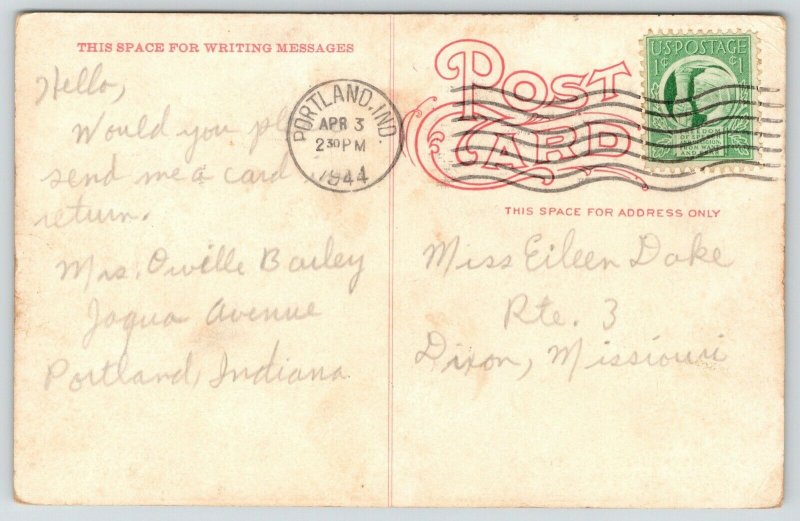 THIS SPACE FOR WRITING MESSAGES
Hello,
Would you
send me a card
return.
Mrs. Orville Bailey
Jaqua Avenue
Portland, Indiana
PORTLAND, IND.
APR 3
2 30 PM
1944
POST
CARD
U.S. POSTAGE
1¢ ¢1
FREEDOM
OF SPEECH
AND RELIGION
FROM WANT
AND FEAR
THIS SPACE FOR ADDRESS ONLY
Miss Eileen Dake
Rte. 3
Dixon, Missiouri